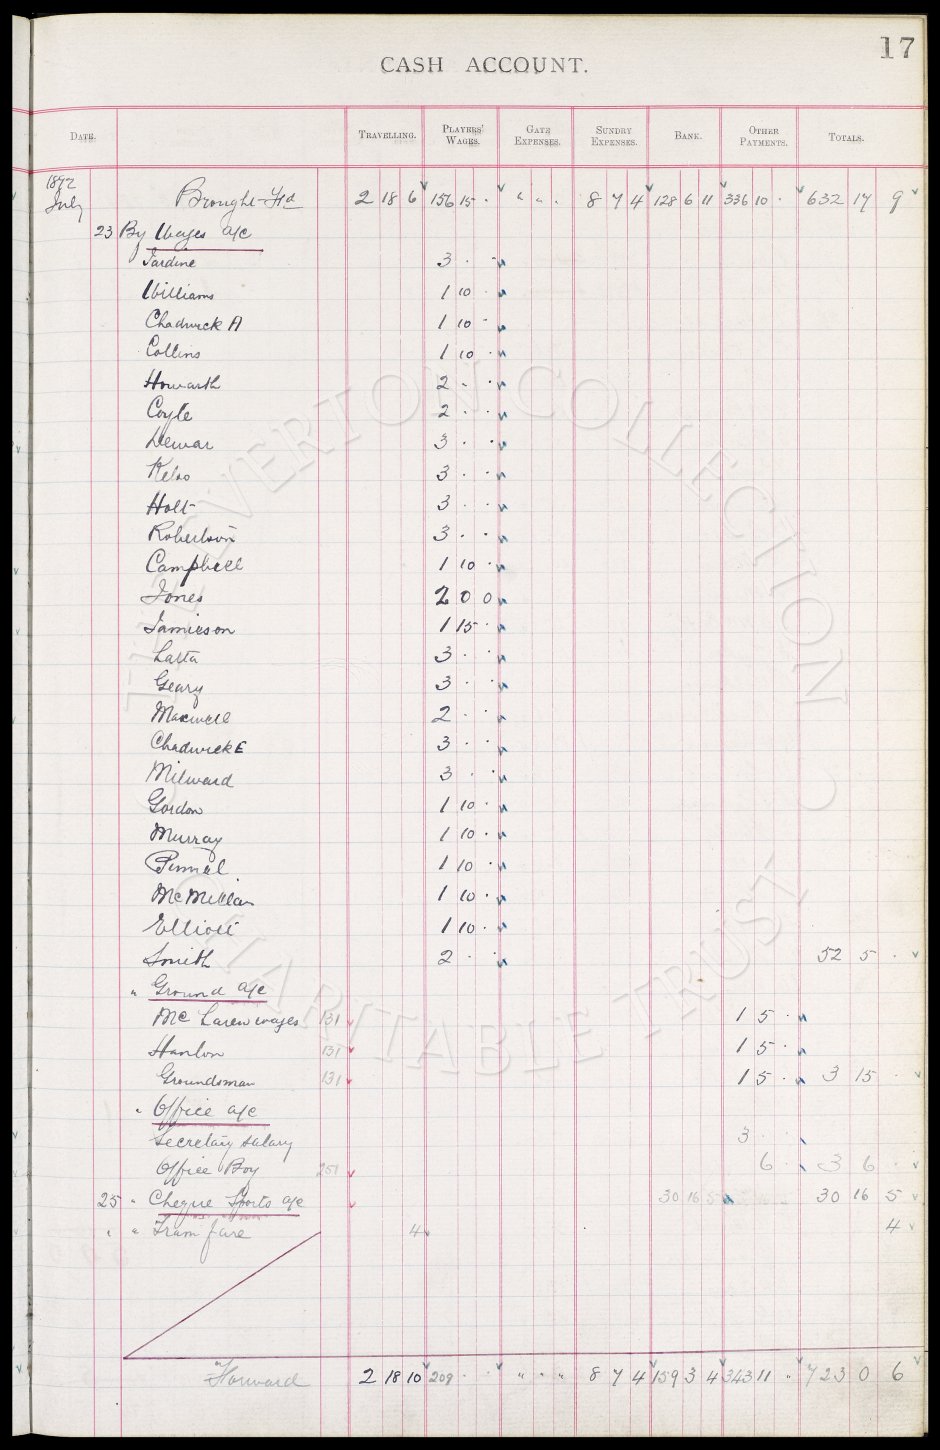 17
CASH ACCOUNT.
DATE. TRAVELLING. PLAYERS' WAGES. GATE EXPENSES. SUNDRY EXPENSES. BANK. OTHER PAYMENTS. TOTALS.
1892
July Brought Fd 2 18 6 156 15 · " " · 8 7 4 128 6 11 336 10 · 632 17 9
23 By Wages a/c
Jardine 3 · ·
Williams 1 10 ·
Chadwick A 1 10 ·
Collins 1 10 ·
Howarth 2 · ·
Coyle 2 · ·
Dewar 3 · ·
Kelso 3 · ·
Holt 3 · ·
Robertson 3 · ·
Campbell 1 10 ·
Jones 2 0 0
Jamieson 1 15 ·
Latta 3 · ·
Geary 3 · ·
Maxwell 2 · ·
Chadwick E 3 · ·
Milward 3 · ·
Gordon 1 10 ·
Murray 1 10 ·
Pinnel 1 10 ·
McMillan 1 10 ·
Elliott 1 10 ·
Smith 2 · · 52 5 ·
" Ground a/c
Mc Laren wages 131 1 5 ·
Hanlon 131 1 5 ·
Groundsman 131 1 5 · 3 15 ·
" Office a/c
Secretary salary 3 · ·
Office Boy 251 6 · 3 6 ·
25 " Cheque Sports a/c 30 16 5 30 16 5
" " Tram fare 4 4
Forward 2 18 10 209 · · " " " 8 7 4 159 3 4 343 11 " 723 0 6
THE EVERTON COLLECTION CHARITABLE TRUST